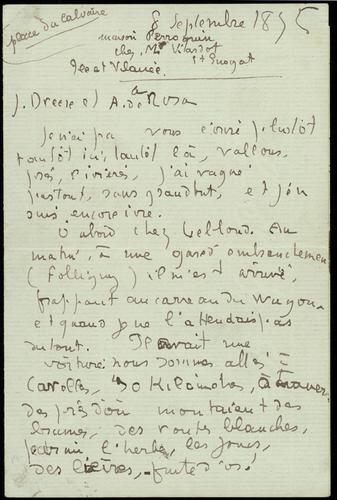 place du Calvaire
8 Septembre 1895
maison Perroquin
chez Mr
St Enogat
Ille et Vilaine
à
J. Dreese et A. de Rosa
Je n'ai pu vous écrire plutôt
tantôt ici, tantôt là, vallons,
prés, rivières, j'ai vagué
partout, sans grand but, et j'en
suis encore ivre.
D'abord chez Leblond. Au
matin, à une gare d'embranchement
(Folligny) il m'est arrivé,
frappant au carreau du wagon
et quand je ne l'attendais pas
du tout. Il avait une
voiture nous sommes allés à
Carolles, 30 Kilomètres, à travers
des prés d'où montaient des
brumes, des routes blanches,
parmi l'herbe, les
des lièvres,